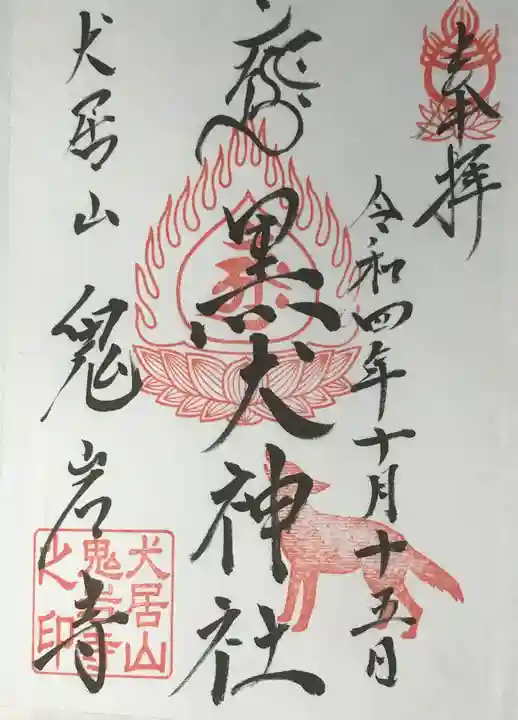 奉拝
令和四年十月十五日
黒犬神社
犬居山 鬼岩寺
犬居山
鬼岩寺
之印